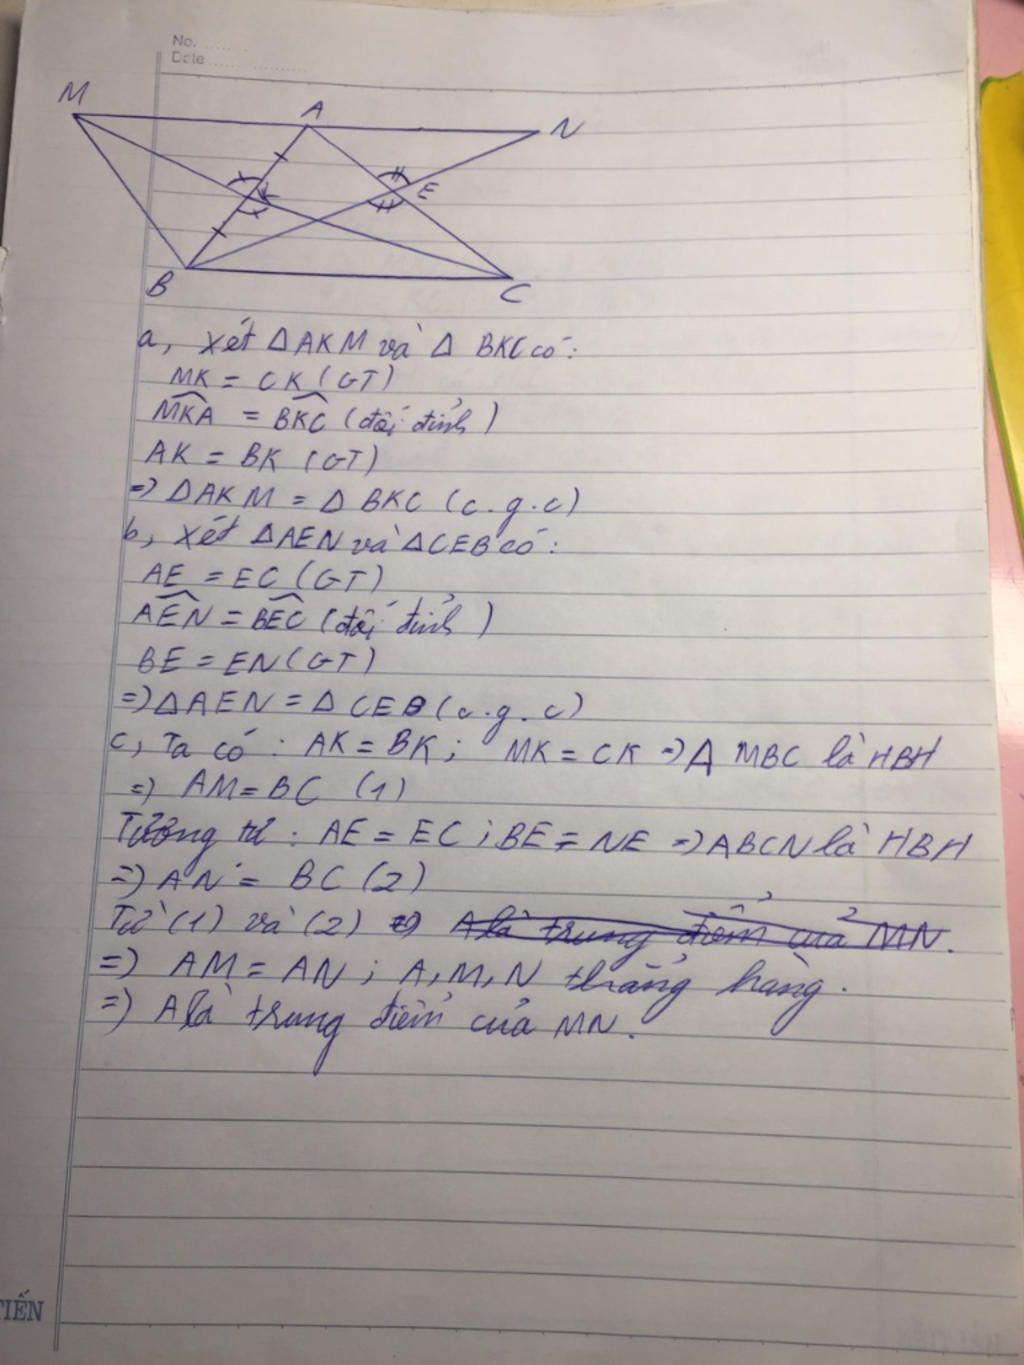 No. ......
Date ...... ..........
M
A
N
K
E
B
C
a, Xét ΔAKM và Δ BKC có:
MK = CK (GT)
\widehat{MKA} = \widehat{BKC} (đối đỉnh)
AK = BK (GT)
=> ΔAKM = Δ BKC (c.g.c)
b, Xét ΔAEN và ΔCEB có:
AE = EC (GT)
\widehat{AEN} = \widehat{BEC} (đối đỉnh)
BE = EN (GT)
=> ΔAEN = Δ CEB (c.g.c)
c, Ta có : AK = BK ; MK = CK => A MBC là HBH
=> AM = BC (1)
Tương tự : AE = EC ; BE = NE => ABCN là HBH
=> AN = BC (2)
Từ (1) và (2) => A là trung điểm của MN.
=> AM = AN ; A, M, N thẳng hàng.
=> A là trung điểm của MN.
TIẾN